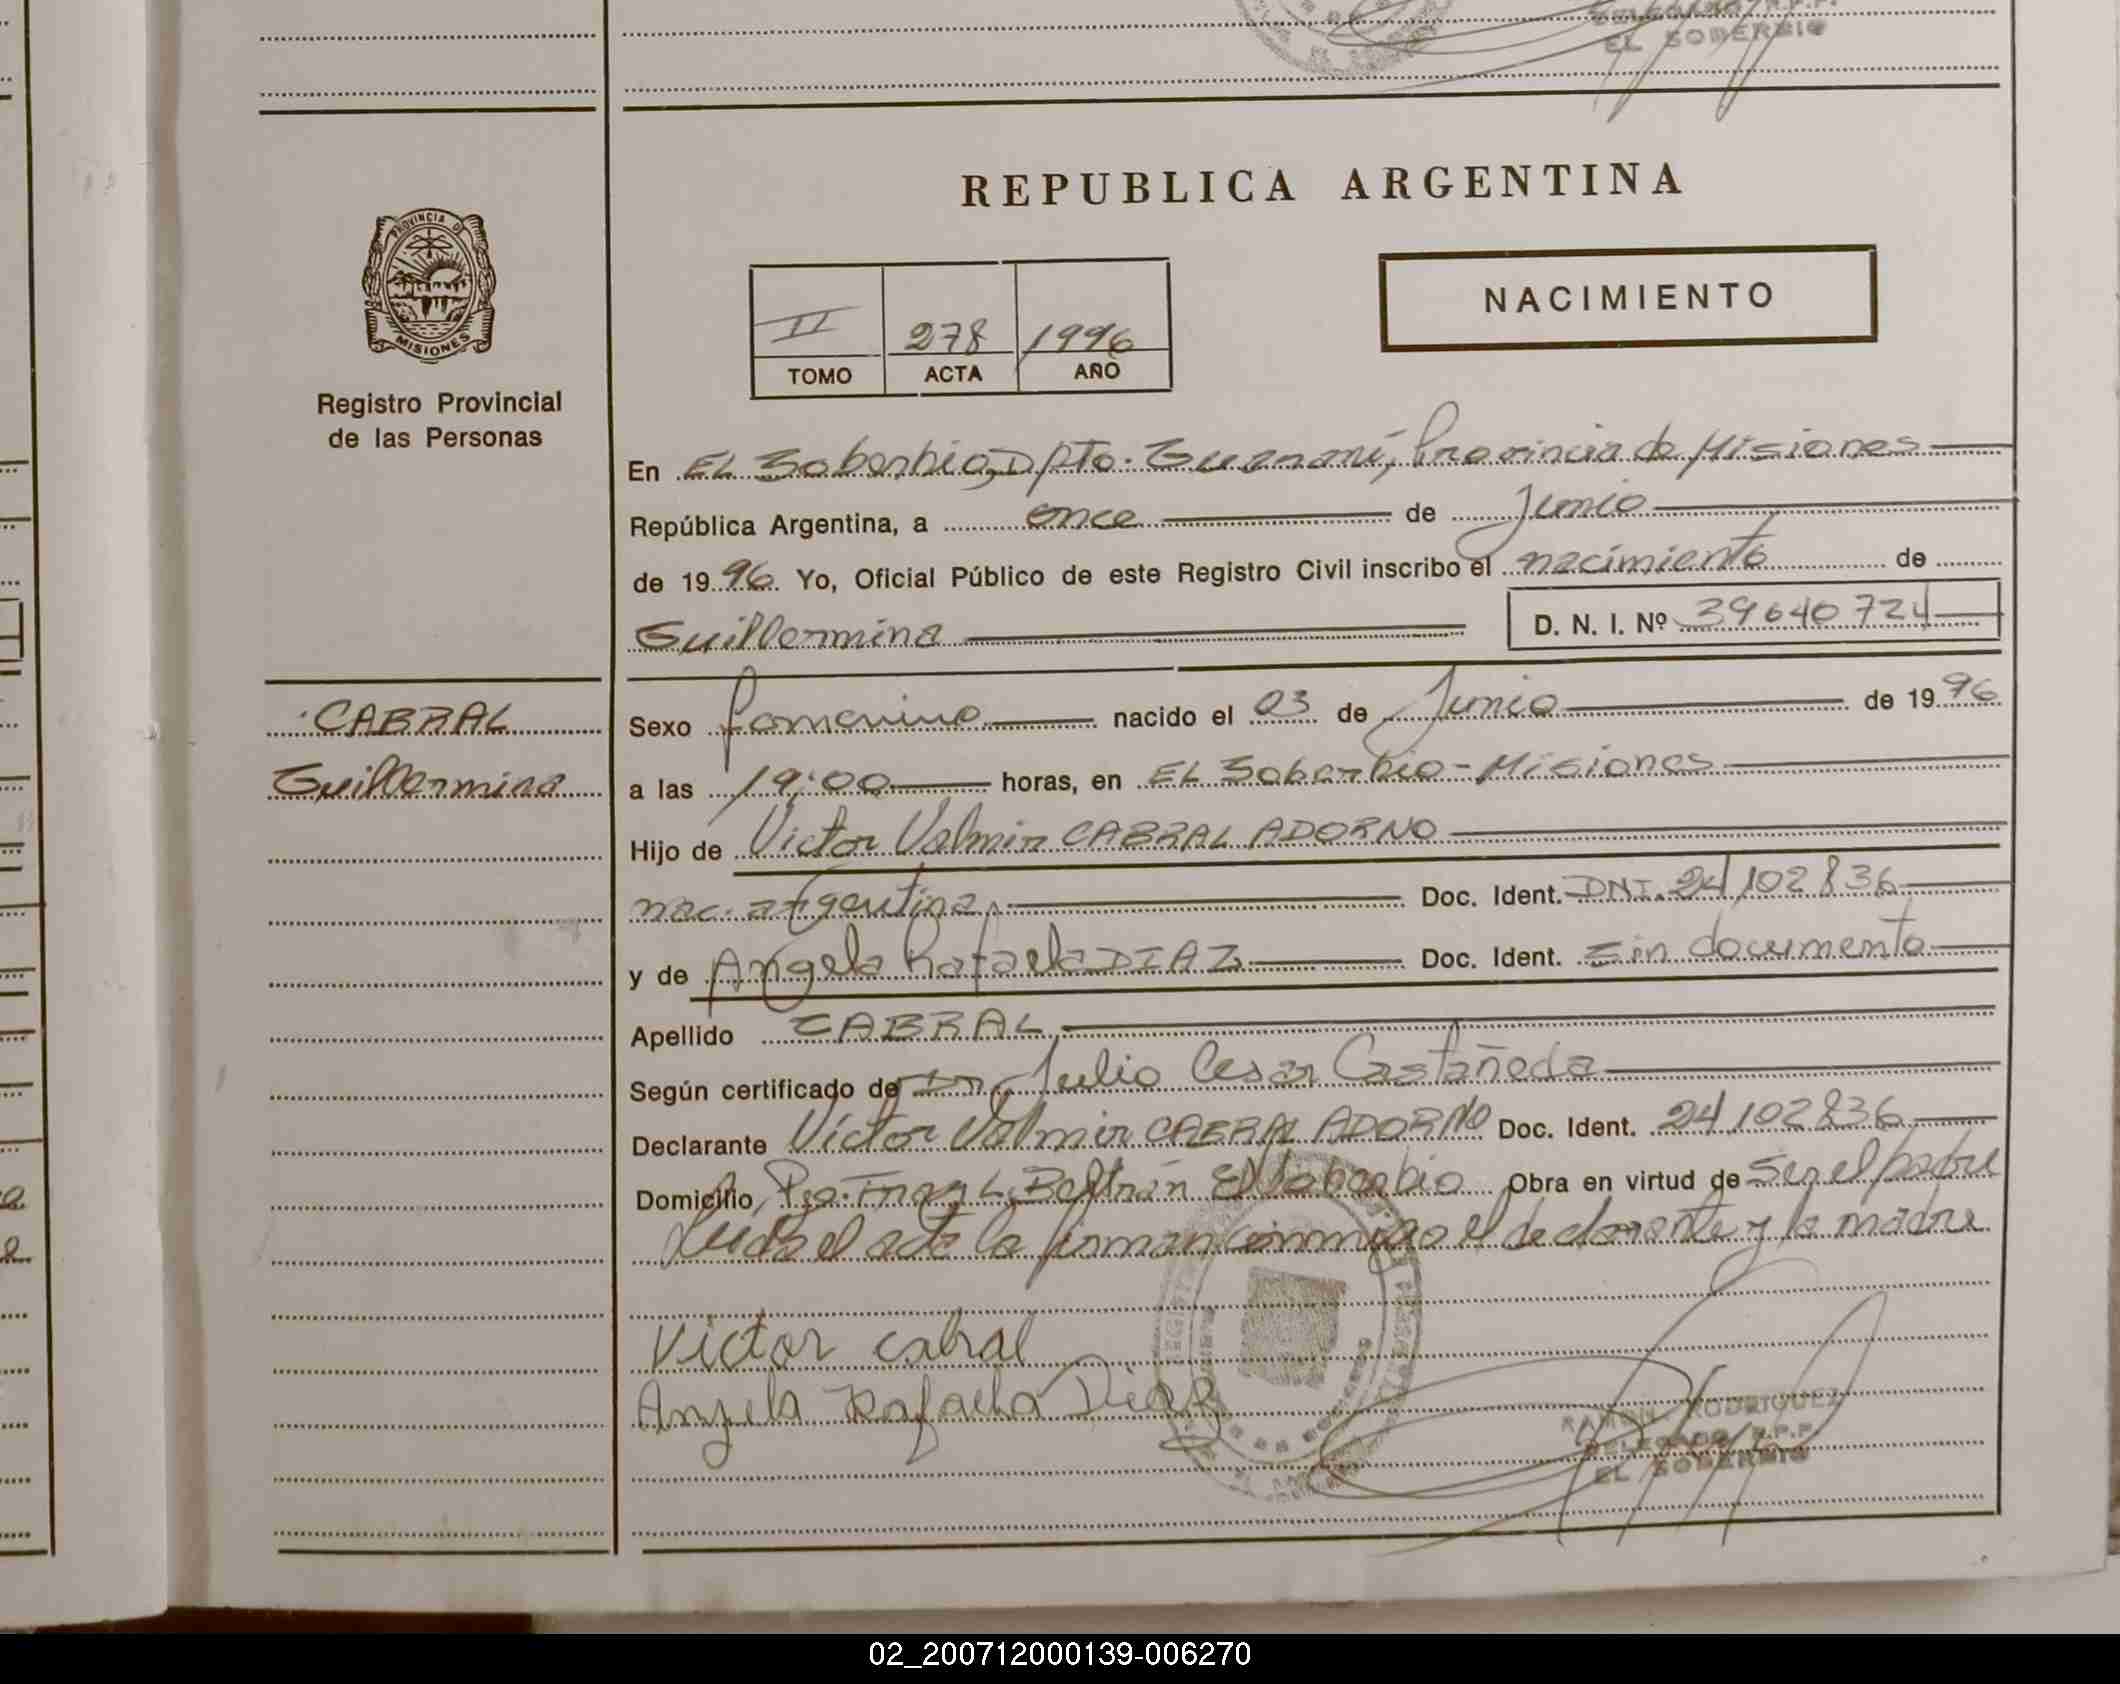 EL SOBERBIO
REPUBLICA ARGENTINA
PROVINCIA D
MISIONES
Registro Provincial
de las Personas
NACIMIENTO
II 278 1996
TOMO ACTA AÑO
En EL Soberbio, Dpto. Guaraní, Provincia de Misiones
República Argentina, a once de Junio
de 1996. Yo, Oficial Público de este Registro Civil inscribo el nacimiento de
Guillermina D. N. I. Nº 39640724
CABRAL
Guillermina
Sexo femenino nacido el 03 de Junio de 1996
a las 19:00 horas, en EL Soberbio - Misiones
Hijo de Victor Valmir CABRAL ADORNO
nac. argentina, Doc. Ident. DNI. 24102836
y de Angela Rafaela DIAZ Doc. Ident. Sin documento
Apellido CABRAL
Según certificado de Dr. Julio Cesar Castañeda
Declarante Víctor Valmir CABRAL ADORNO Doc. Ident. 24102836
Domicilio Pje. Fray L. Beltrán El Soberbio Obra en virtud de Ser el padre
Leida el acta la firman conmigo el declarante y la madre
Victor cabral
Angela Rafaela Diaz
RAMON RODRIGUEZ
DELEGADO R.P.P.
EL SOBERBIO
02_200712000139-006270